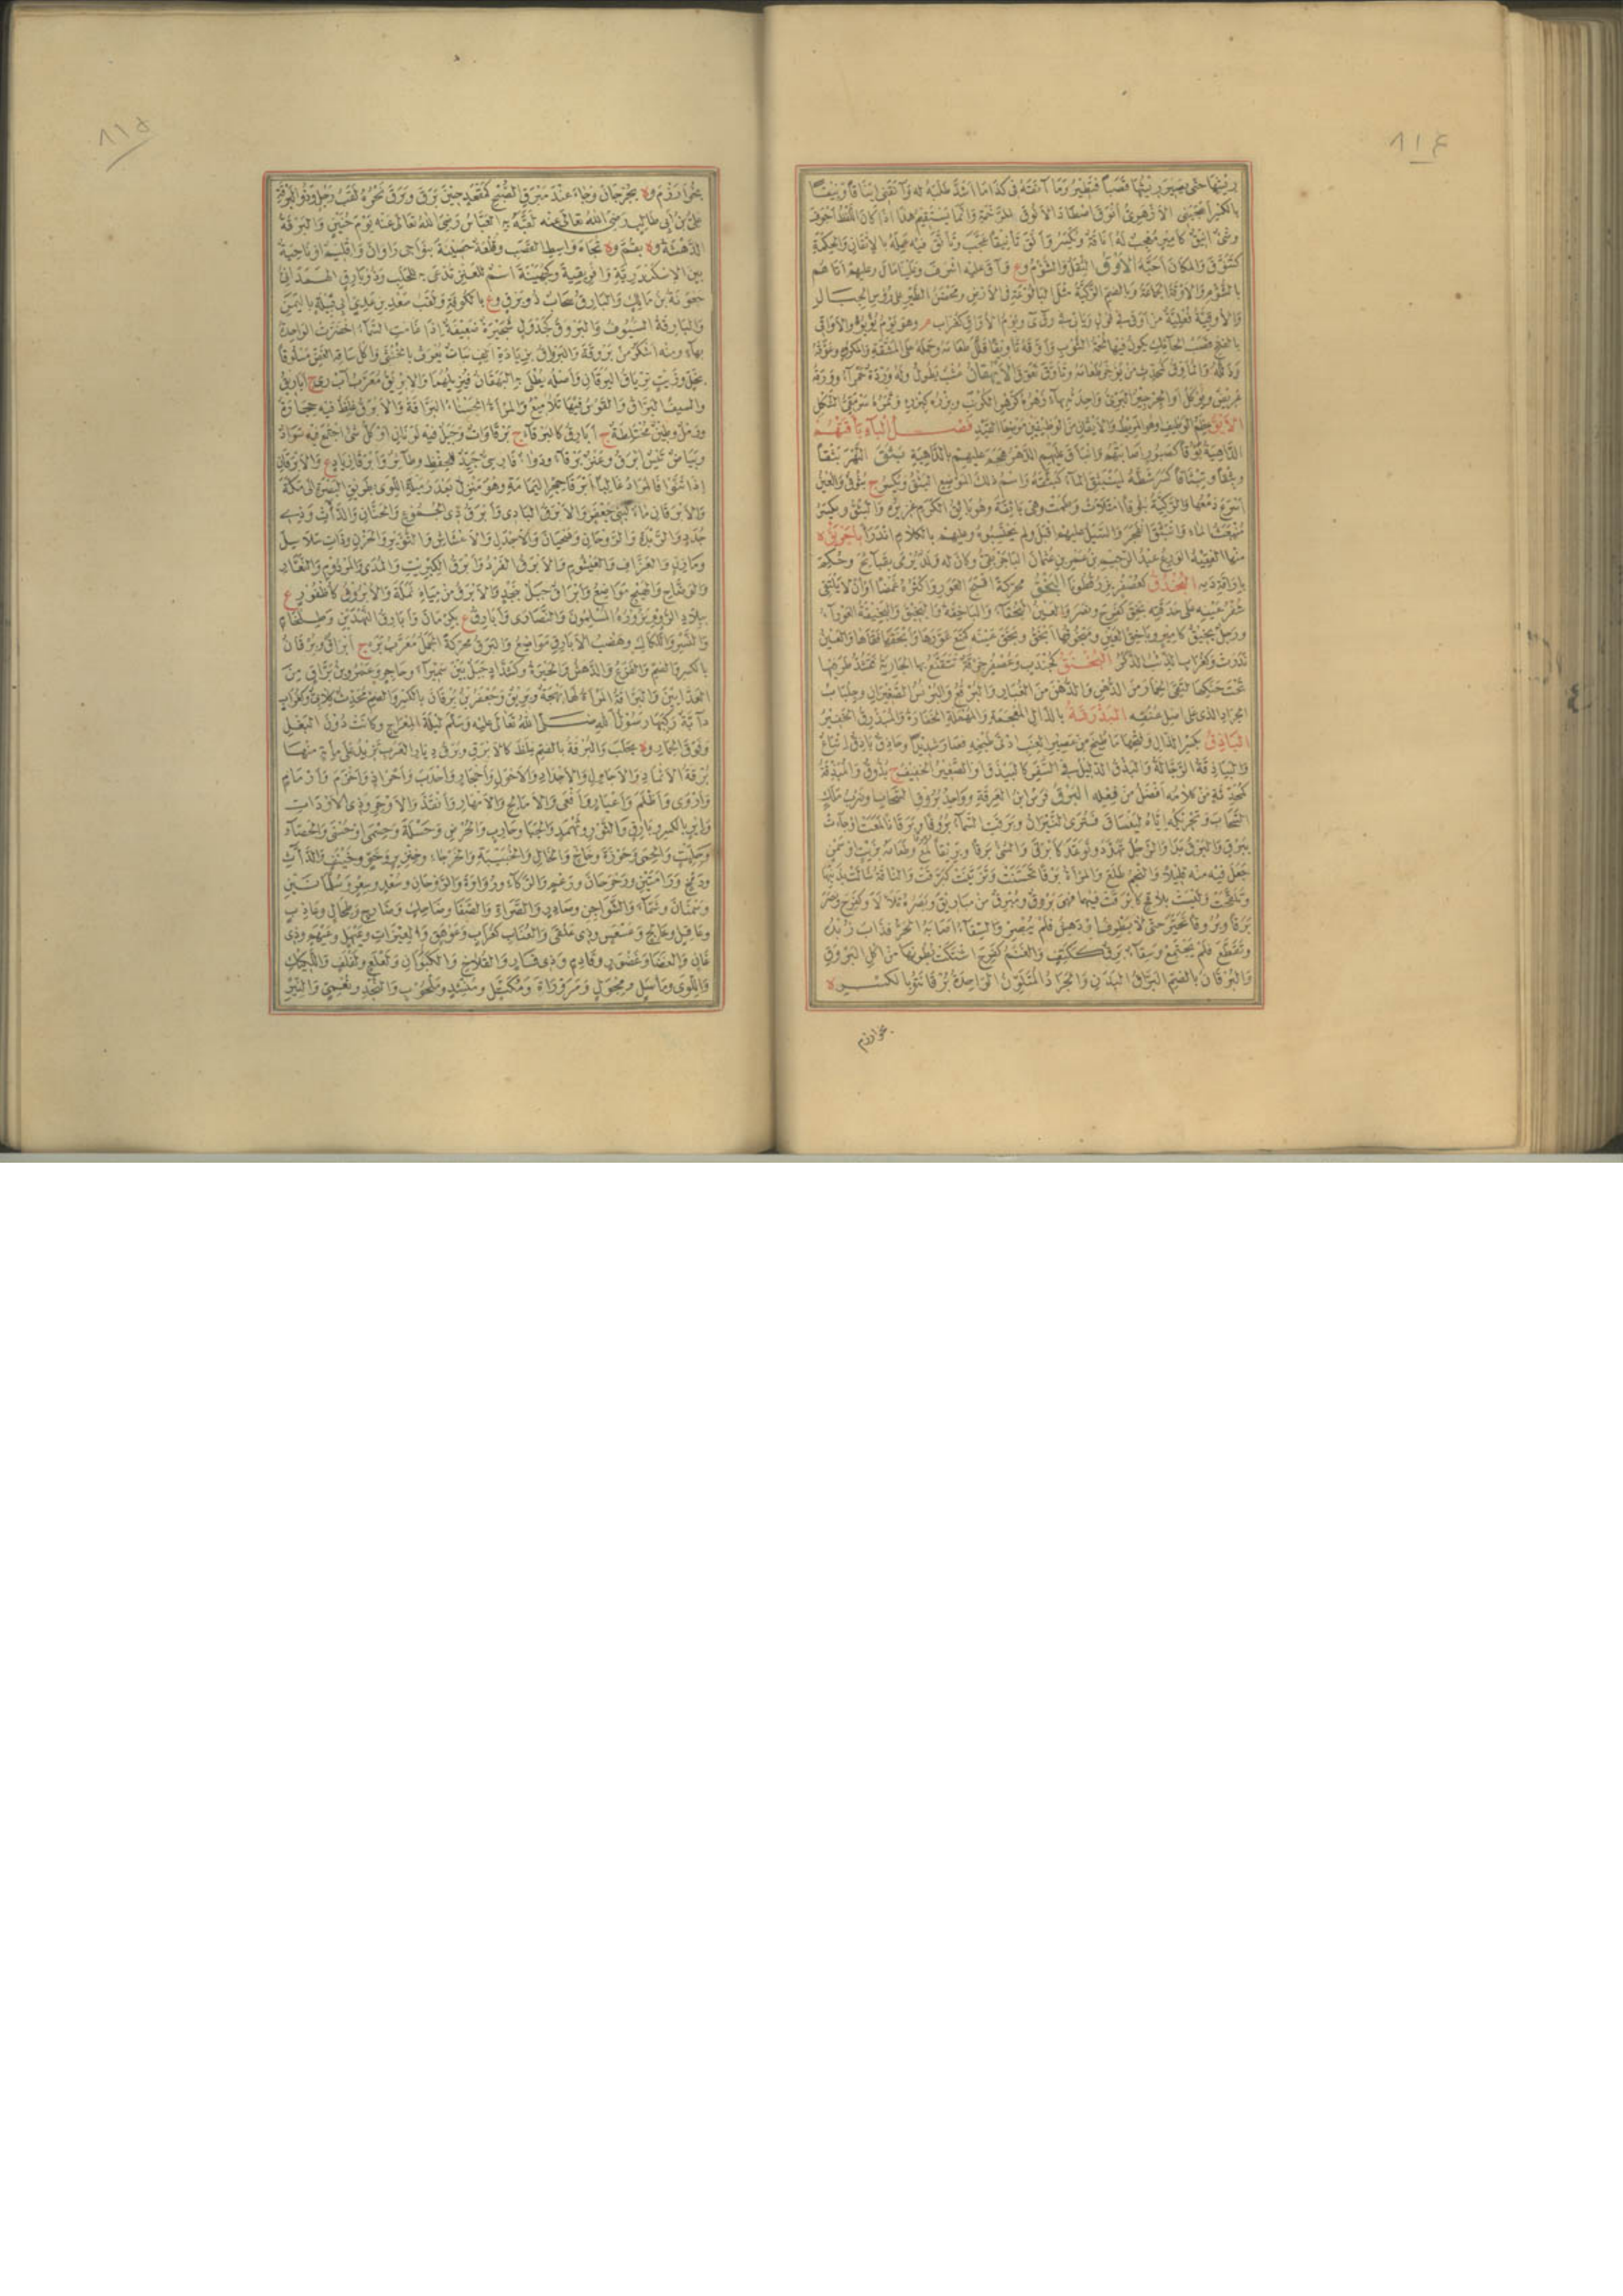 ٨١٤
ريشها حتى يصير ريشها قصبا فتطير وما آنقه في كذا ما اشد طلبه له وآنقني ايناقا ونيقا
بالكسر اعجبني
وشئ انيق كامير معجب له اناقة وتكسر وانق تأنيقا عجب وتأنق فيه عمله بالاتقان والحكمة
كتنوق والمكان احبه الأوق الثقل والشؤم وع وآق عليه اشرف وعلينا مال وعليهم اتاهم
بالشؤم والأوقة الجماعة وبالضم الركية مثل البالوعة في الارض ومحضن الطير على رؤس الجبال
والاوقية فعلية من اوق في قول ويأتي في وقى ويوم الأواق كغراب م وهو يوم يؤيؤ والاواقي
بالفتح قصب الحائك يكون فيها لحمة الثوب واوقه تأويقا قلل طعامه وحمله على المشقة والمكروه وعوقه
وذلله والمأوق كمحدث من يؤخر طعامه وتأوق تعوق الأيهقان عشب يطول وله وردة حمراء وورقه
عريض ويؤكل او الجرجير البري واحدته بهاء
الأيق عظم الوظيف وهو المريط والايقان من الوظيفين موضعا القيد فصل الباء باقتهم
الداهية بؤوقا كصبور اصابتهم وانباق عليهم الدهر هجم عليهم بالداهية بثق النهر بثقا
وبثقا وتبثاقا كسر شطه لينبثق الماء كبثقه واسم ذلك الموضع البثق ويكسر ج بثوق والعين
اسرع دمعها والركية بثوقا امتلأت وطمت وهي باثقة وهو باثق الكرم غزيره والبثق ويكسر
منبعث الماء وانبثق انفجر والسيل عليهم اقبل ولم يحتسبوه وعليهم بالكلام اندرأ باجربق ة
منها الفقيه الورع عبد الرحيم بن عمر بن عثمان الباجربقي وكان له ولد يرمى بقبائح وحكم
باراقة دمه البحدق كعصفر بزر قطونا البخق محركة اقبح العور واكثره غمصا او ان لا يلتقي
شفر عينيه على حدقته بخق كفرح ونصر والعين البخقاء والباخقة والبخيق والبخيقة العوراء
ورجل بخيق كامير وباخق العين ومبخوقها ابخق وبخق عينه كمنع عورها وابخقها فقأها والعين
ندرت وكغراب الذئب الذكر البخنق كجندب وعصفر خرقة تتقنع بها الجارية فتشد طرفيها
تحت حنكها لتقي الخمار من الدهن والدهن من الغبار والبرقع والبرنس الصغيران وجلباب
الجراد الذي على اصل عنقه البذرقة بالذال المعجمة والمهملة الخفارة والمبذرق الخفير
الباذق بكسر الذال وفتحها ما طبخ من عصير العنب ادنى طبخة فصار شديدا وحاذق باذق اتباع
والبياذقة الرجالة والبيذق الدليل في السفر كالبيذق والصغير الخفيف ج بذوق والمبذقة
كمحدثة من كلامه افضل من فعله البرق فرس ابن العرقة وواحد بروق السحاب وضرب ملك
السحاب وتحريكه اياه لينساق فترى النيران وبرقت السماء بروقا وبرقانا لمعت او جاءت
ببرق والبرق بدا والرجل تهدد وتوعد كابرق والشئ برقا وبريقا لمع وطعامه بزيت او سمن
جعل فيه منه قليلا والنجم طلع والمرأة برقا تحسنت وتزينت كبرقت والناقة شالت بذنبها
وتلقحت وليست بلاقح كابرقت فيهما فهي بروق ومبرق من مباريق وبصره تلألأ وكفرح ونصر
برقا وبروقا تحير حتى لا يطرف او دهش فلم يبصر والسقاء اصابه الحر فذاب زبده
وتقطع فلم يجتمع وسقاء برق ككتف والغنم كفرح اشتكت بطونها من اكل البروق
والبرقان بالضم البراق البدن والجراد المتلون الواحدة برقانة وبالكسر ة
بخوارزم
٨١٥
بخوارزم وة بجرجان وجاء عند مبرق الصبح كمقعد حين برق وبرق نحره لقب رجل وذو البرقة
علي بن ابي طالب رضي الله تعالى عنه لقبه به العباس رضي الله تعالى عنه يوم حنين والبرقة
الدهشة وة بقم وة تجاه واسط القصب وقلعة حصينة بنواحي دوان واقليم او ناحية
بين الاسكندرية وافريقية وكجهينة اسم للعنز تدعى به للحلب وذو بارق الهمداني
جعونة بن مالك والبارق سحاب ذو برق وع بالكوفة ولقب سعد بن عدي ابي قبيلة باليمن
والبارقة السيوف والبروق كجدول شجيرة ضعيفة اذا غامت السماء اخضرت الواحدة
بهاء ومنه اشكر من بروقة والبرواق بزيادة الف نبات يعرف بالخنثى واكل ساقه الغض مسلوقا
بخل وزيت ترياق اليرقان واصله يطلى به البهقان فيزيلهما والابريق معرب آب ري ج اباريق
والسيف البراق والقوس فيها تلاميع والمرأة الحسناء البراقة والابرق غلظ فيه حجارة
ورمل وطين مختلطة ج ابارق كالبرقاء ج برقاوات وجبل فيه لونان او كل شئ اجتمع فيه سواد
وبياض تيس ابرق وعنز برقاء ودواء فارسي جيد للحفظ وطائر وابرقا زياد ع والابرقان
اذا ثنوا فالمراد غالبا ابرقا حجر اليمامة وهو منزل بعد رميلة اللوى بطريق البصرة الى مكة
والابرقان ماء لبني جعفر والابرق البادي وابرق ذي الجموع والحنان والدآث وذي
جدد والربذة والروحان وضحيان والاجدل والاعشاش
ومازن والعزاف والعيشوم والابرق الفرد وابرق الكبريت والمدى والمردوم والنعار
والوضاح والهيج مواضع وابراق جبل بنجد والابرق من مياه نملة والابروق كاظفور ع
ببلاد الروم يزوره المسلمون والنصارى وابارق ع بكرمان وابارق الثمدين وطلخام
والنسر واللكاك وهضب الابارق مواضع والبرق محركة الحمل معرب بره ج ابراق وبرقان
بالكسر والضم والفزع والدهش والحيرة وكشداد جبل بين سميراء وحاجر وعمرو بن براق من
العدائين والبراقة المرأة لها بهجة وبريق وجعفر بن برقان بالكسر والضم محدث كلابي وكغراب
دابة ركبها رسول الله صلى الله تعالى عليه وسلم ليلة المعراج وكانت دون البغل
وفوق الحمار وة بحلب والبرقة بالضم غلظ كالابرق وبرق ديار العرب تزيد على مائة منها
برقة الاثماد والاجاول والاجداد والاجول واحجار واحدب واحواذ واخرم وارمام
واروى واظلم واعيار وافعى والامالح والامهار وانقد والاوجر وذي الاودات
واير بالكسر وبارق والثور وثهمد والجبا وحارب والحرض وحسلة وحسمى او حسنى والحصاء
وحليت والحمى وحوزة وخاخ والخال والخبيبة والخرجاء وخنزير وخو وخينف والدآث
ودمخ ورامتين ورحرحان ورعم والركاء ورواوة والروحان وسعد وسعر وسلمانين
وسمنان وشماء والشواجن وصادر والصراة والصفا وضاحك وضارج وطحال وعاذب
وعاقل وعالج وعسعس وذي علقى والعناب كغراب وعوهق والعيرات وعيهل وعيهم وذي
غان والغضا وغضور وقادم وذي قار والقلاخ والكبوان ولعلع ولفلف واللكيك
واللوى ومأسل ومجول ومرورات ومكتل ومنشد وملحوب والنجد ونعمي والنير